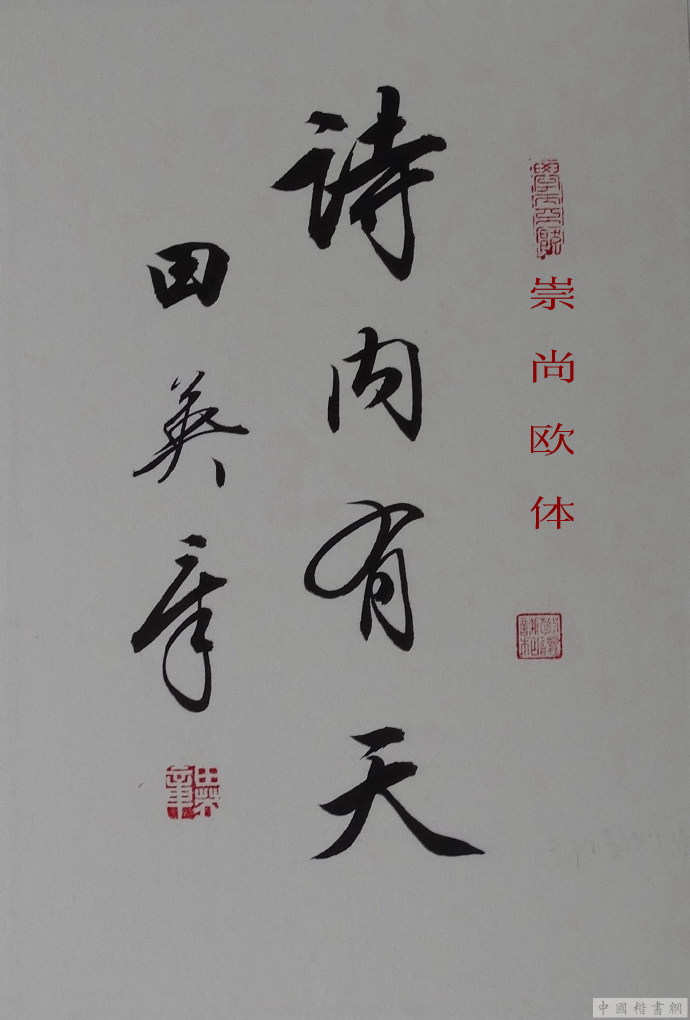 崇尚欧体
诗内有天
田英章
田英章
中國楷書網